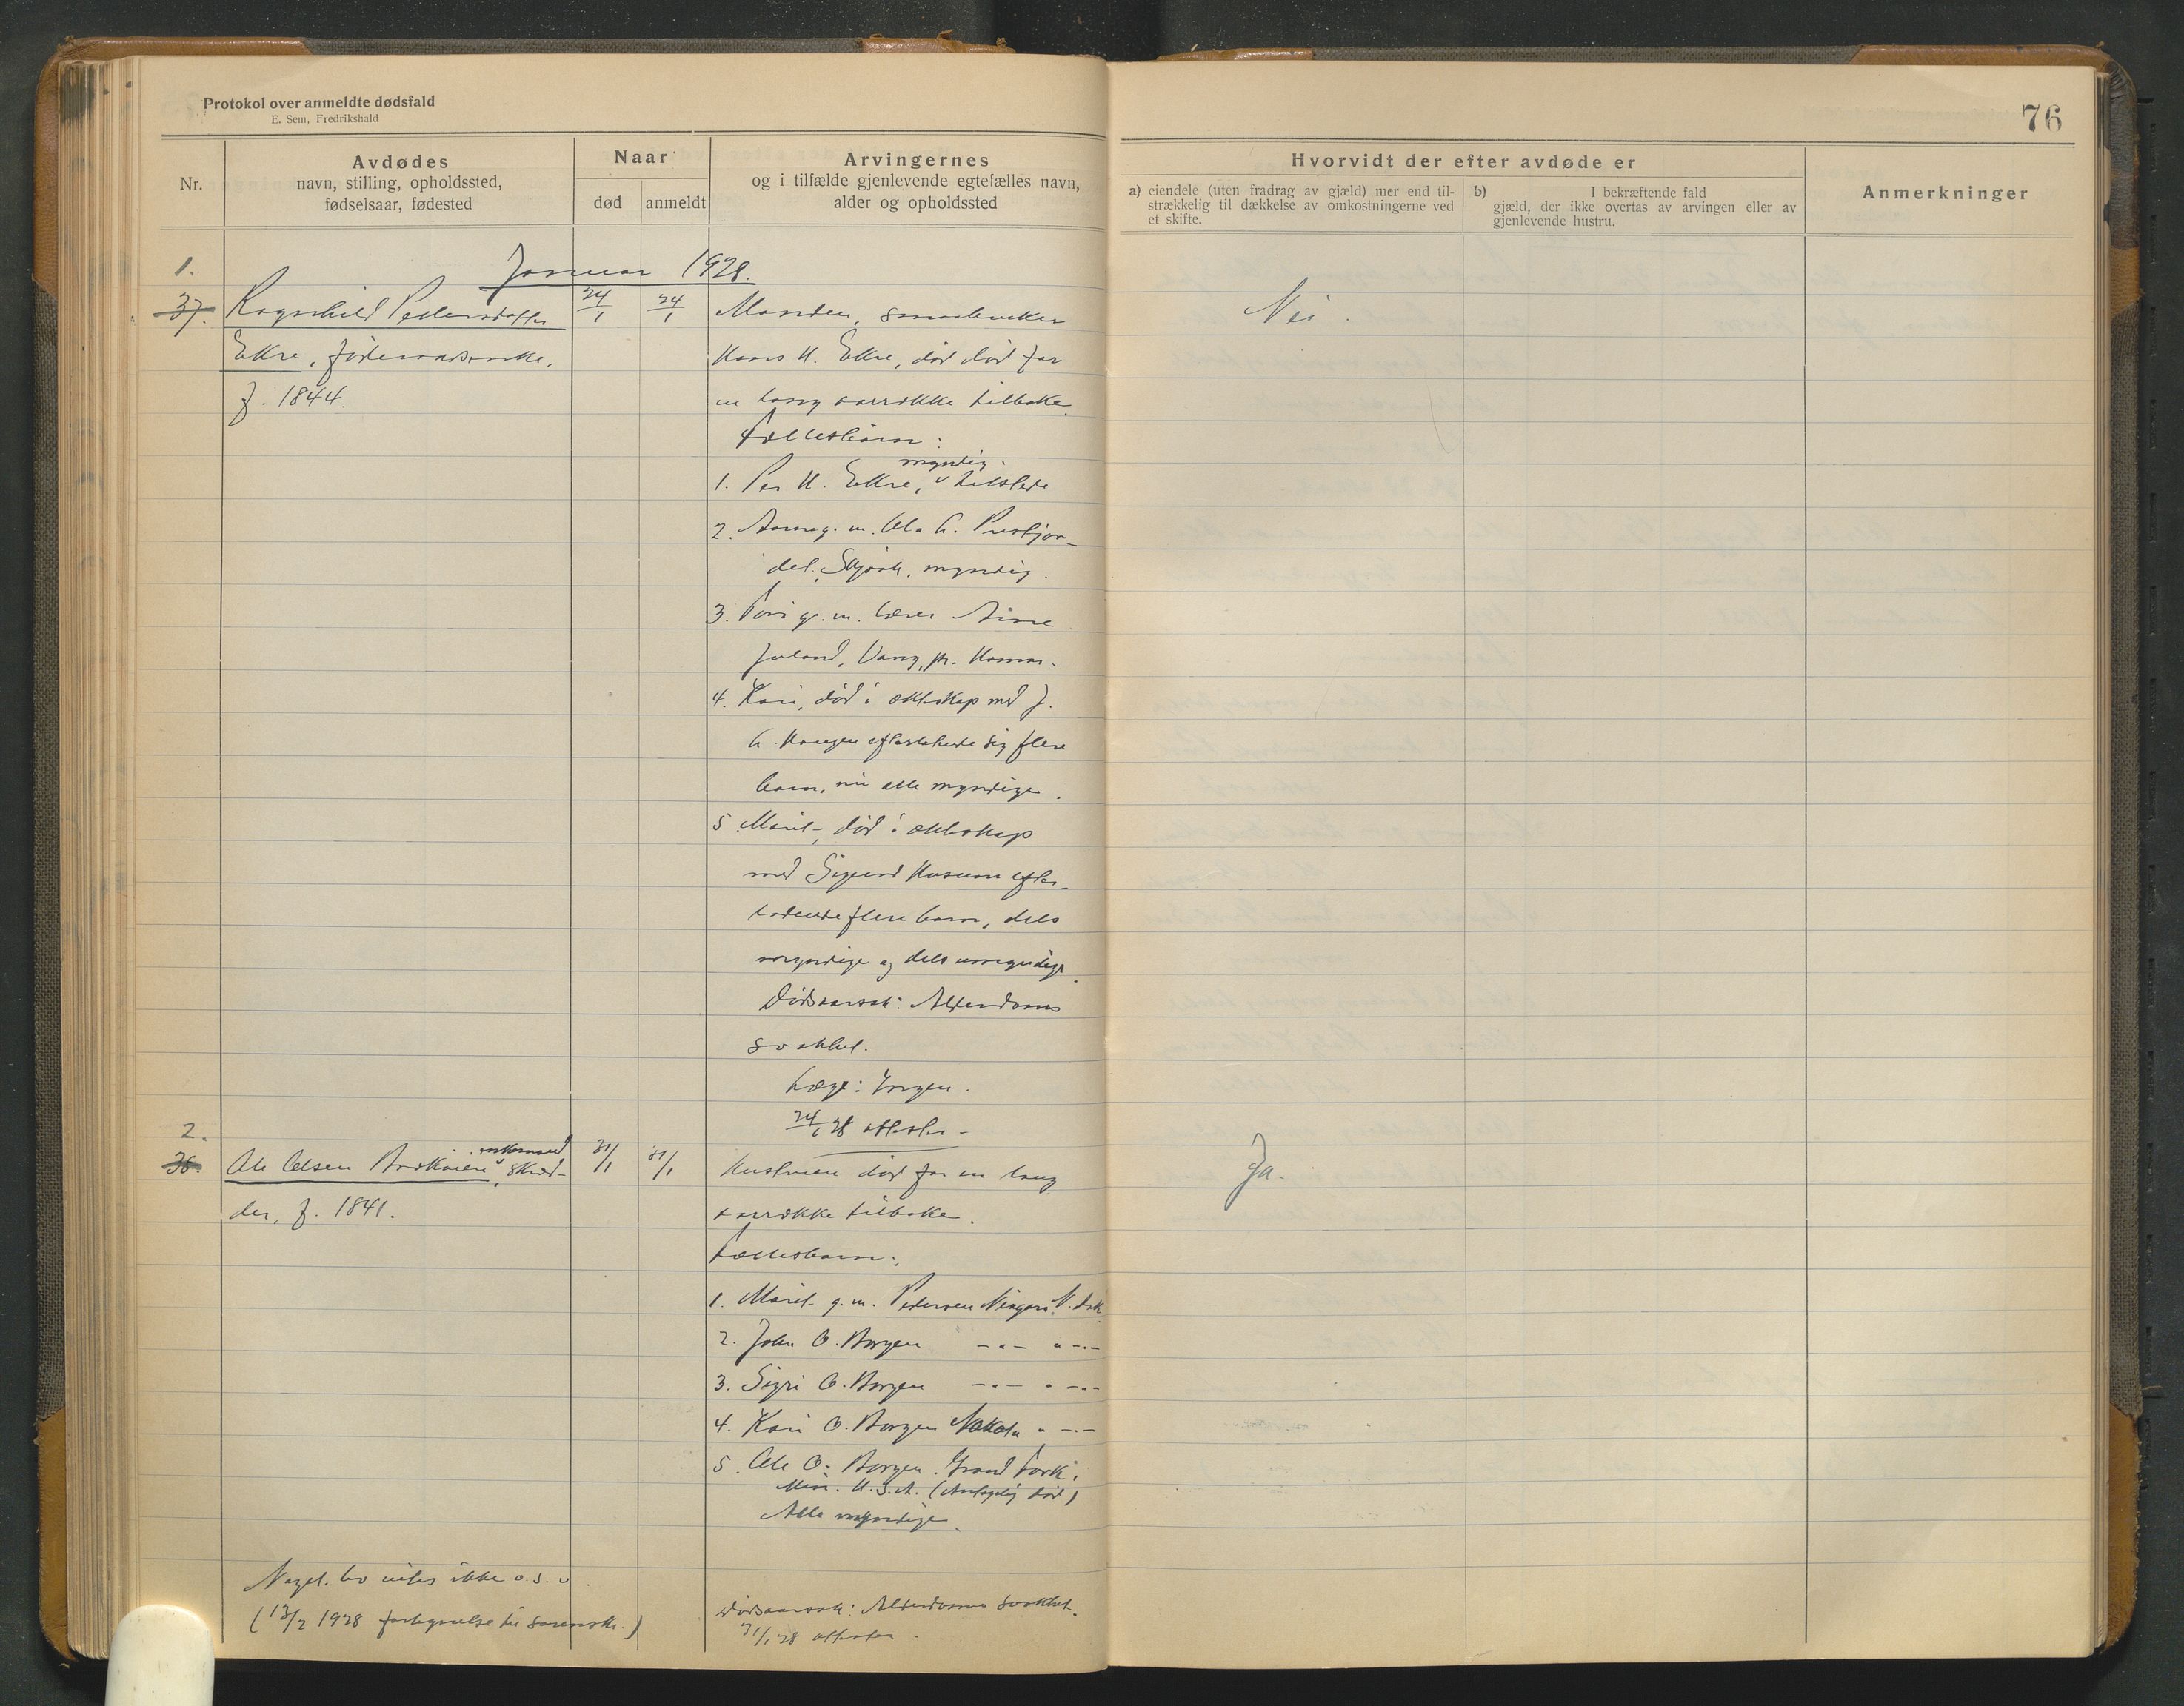 Protokol over anmeldte dødsfald
E. Sem, Fredrikshald
76
Nr.
Avdødes
navn, stilling, opholdssted,
fødselsaar, fødested
Naar
død
anmeldt
Arvingernes
og i tilfælde gjenlevende egtefælles navn,
alder og opholdssted
Hvorvidt der efter avdøde er
a) eiendele (uten fradrag av gjæld) mer end til-
strækkelig til dækkelse av omkostningerne ved
et skifte.
b) I bekræftende fald
gjæld, der ikke overtas av arvingen eller av
gjenlevende hustru.
Anmerkninger
Januar 1928.
1.
37.
Ragnhild Pedersdatter
Ekre, føderaadsenke,
f. 1844.
24/1
24/1
Manden, gaardbruker
Hans H. Ekre, død for
en lang aarrække tilbake.
Fællesbarn:
myndig.
1. Per H. Ekre, tilstede
2. Anne g. m. Ola
del, Skjaak, myndig.
3. g. m. lærer
Vang, pr. Hamar.
4. Kari, død i ækteskap med J.
Haugen efterlatende sig flere
barn, nu alle myndige.
5. Marit, død i ækteskap
med Sigurd Husum efter-
latende flere barn, dels
myndige og dels umyndige.
Dødsaarsak: Alderdoms
svakhet.
Læge: Ingen.
24/1 28 attester
Nei.
2.
38.
Ole Olsen skræd-
der, f. 1841.
31/1
31/1
Hustruen død for en lang
aarrække tilbake.
Fællesbarn:
1. Marit g. m. Pedersen
2. John O. Borgen -"- " -"-
3. Sigri O. Borgen -"- " -"-
4. Kari O. Borgen " -"-
5. Ole O. Borgen. Grand Fork,
Min. U.S.A. (Antagelig død)
Alle myndige.
Ja.
ikke o.s.v.
(13/2 1928 til sorenskr.)
Dødsaarsak: Alderdoms svakhet.
31/1 28 attester.